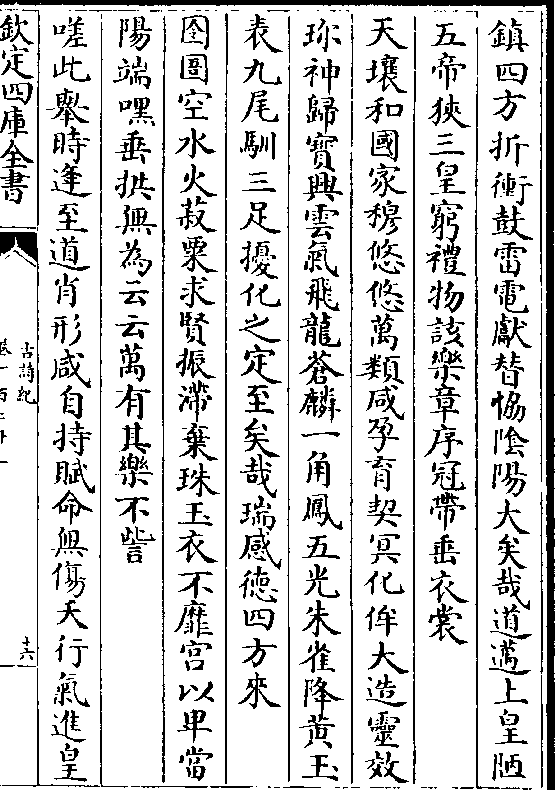 鎮四方折衝鼓雷電獻替恊陰陽大矣哉道邁上皇陋
五帝狹三皇窮禮物該樂章序冠帶垂衣裳
天壤和國家穆悠悠萬類咸孕育契冥化侔大造靈效
珎神歸寳興雲氣飛龍蒼麟一角鳳五光朱雀降黄玉
表九尾馴三足擾化之定至矣哉瑞感德四方來
囹圄空水火菽粟求賢振滯棄珠玉衣不靡宫以卑當
陽端嘿垂拱無為云云萬有其樂不訾
嗟此舉時逢至道肖形咸自持賦命無傷夭行氣進皇
欽定四庫全書
古詩紀
十六